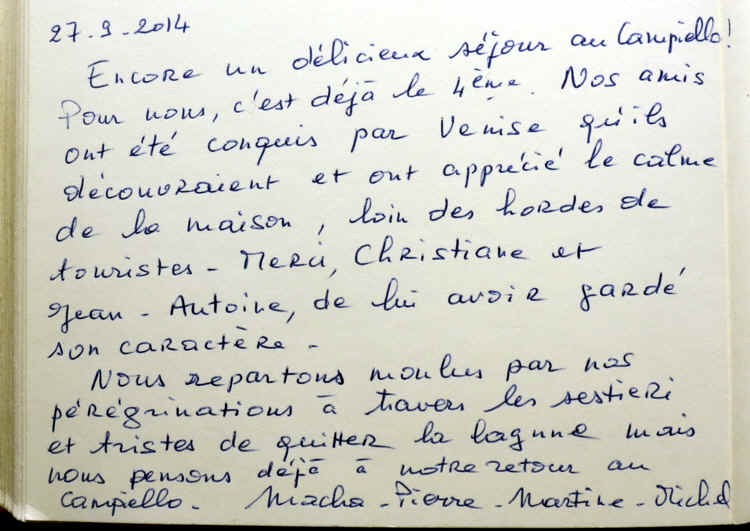 27.9.2014
Encore un délicieux séjour au Campiello!
Pour nous, c'est déjà le 4ème. Nos amis
ont été conquis par Venise qu'ils
découvraient et ont apprécié le calme
de la maison, loin des hordes de
touristes - Merci, Christiane et
Jean - Antoine, de lui avoir gardé
son caractère -
Nous repartons moulus par nos
pérégrinations à travers les sestieri
et tristes de quitter la lagune mais
nous pensons déjà à notre retour au
Campiello. Macha - Pierre - Martine - Michel